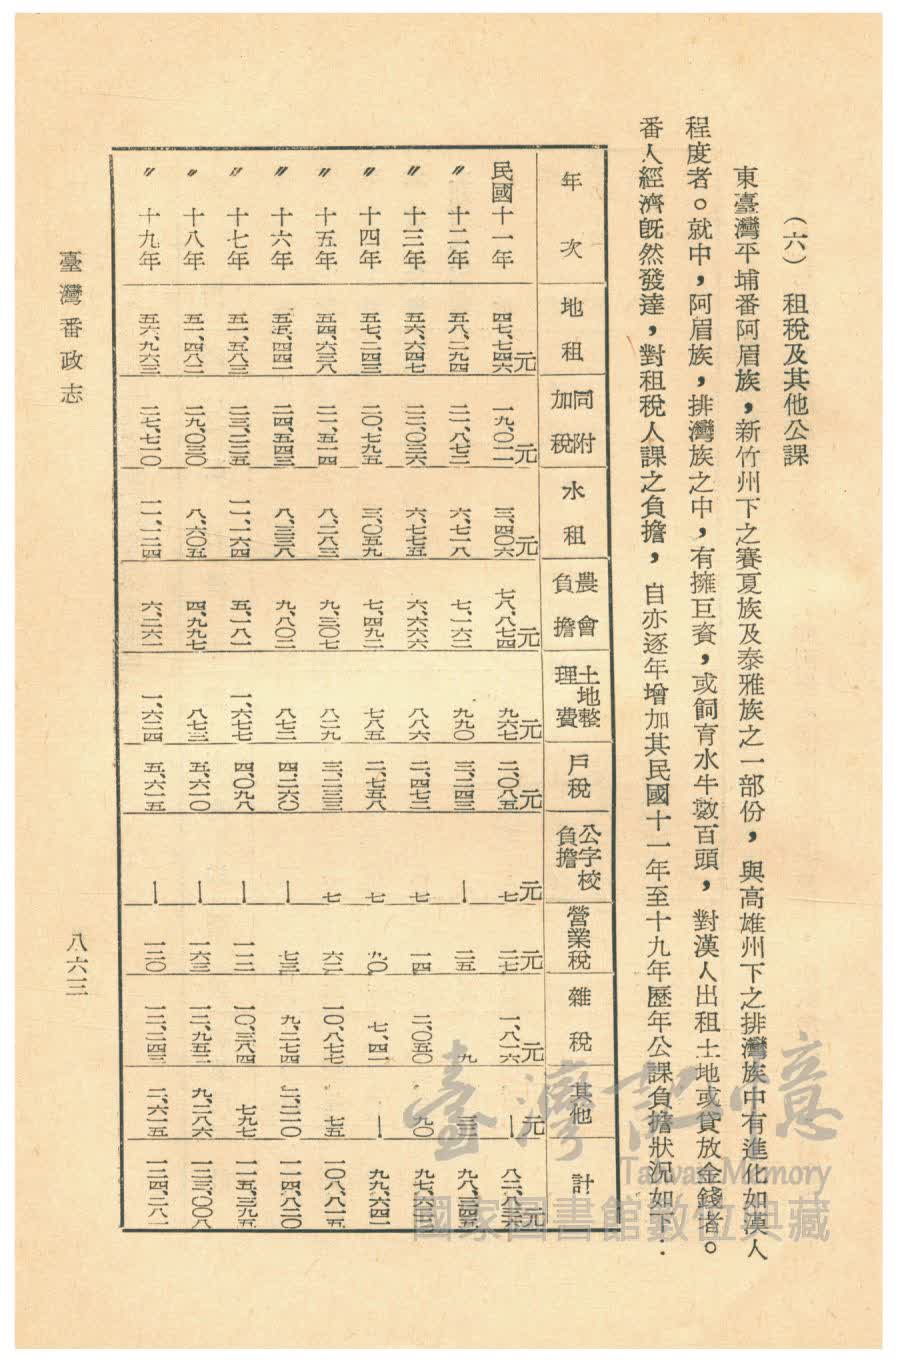 (六) 租稅及其他公課
東臺灣平埔番阿眉族，新竹州下之賽夏族及泰雅族之一部份，與高雄州下之排灣族中有進化如漢人
程度者。就中，阿眉族，排灣族之中，有擁巨資，或飼育水牛數百頭，對漢人出租土地或貸放金錢者。
番人經濟旣然發達，對租稅人課之負擔，自亦逐年增加其民國十一年至十九年歷年公課負擔狀況如下：
年次 地租 同附加稅 水租 農會負擔 土地整理費 戶稅 公字校負擔 營業稅 雜稅 其他 計
民國十一年 四七、七四六元 一九、〇二一元 三、四〇六元 七八、八七四元 九六七元 二、〇八五元 七元 二七元 一、八一六元 —元 八二、八三六元
〃十二年 五八、二九四 二一、八七二 六、七一八 七、一六二 九九〇 三、二四三 — 二五 九 三二 九八、三四五
〃十三年 五六、六四七 二二、〇三六 六、七七五 六、六六六 八八六 二、四七二 七 一四 二、〇五〇 九〇 九七、六四三
〃十四年 五七、二四三 二〇、七九五 三、〇五九 七、四九二 七八五 二、七五八 七 九〇 七、四一二 — 九九、六四一
〃十五年 五四、六三八 二一、五一四 八、二八三 九、三〇七 八二九 三、二三三 七 六二 一〇、八七七 七五 一〇八、八一五
〃十六年 五五、四四一 二四、五四三 八、三三八 九、八〇二 八七二 四、二六〇 — 七三 九、二七四 二、二二〇 一一四、八二〇
〃十七年 五一、五八三 二三、二二五 一一、一六四 五、一八一 一、六七七 四、〇九八 — 一一二 一〇、三八四 七九七 一一五、三九五
〃十八年 五一、四八二 二九、〇三〇 八、六〇五 四、九九七 八七三 五、六一〇 — 一六三 一二、九五二 九、二八六 一二三、〇〇八
〃十九年 五六、九六三 二七、七一〇 一一、一二四 六、二六一 一、六二四 五、六一五 — 一二〇 一二、二四三 二、六一五 一二四、二八一
臺灣番政志
八六三
臺灣記憶
Taiwan Memory
國家圖書館數位典藏